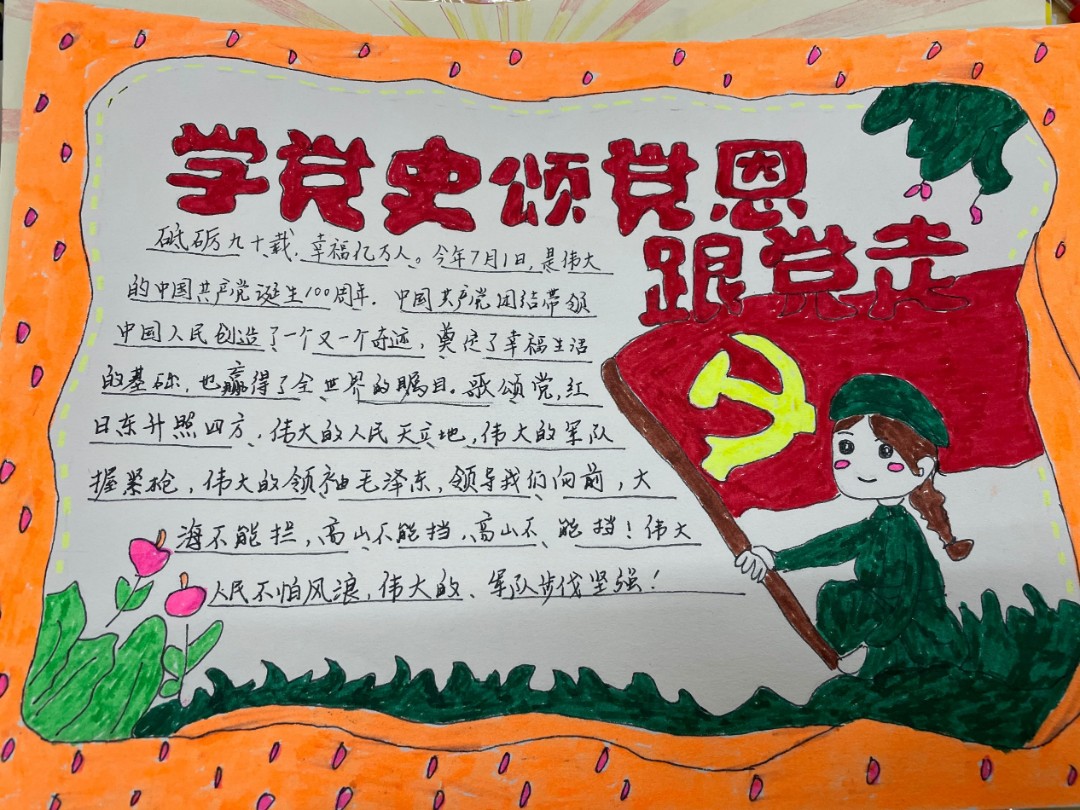 学党史颂党恩
跟党走
砥砺九十载，幸福亿万人。今年7月1日，是伟大
的中国共产党诞生100周年．中国共产党团结带领
中国人民创造了一个又一个奇迹，奠定了幸福生活
的基础，也赢得了全世界的瞩目。歌颂党，红
日东升照四方，伟大的人民天立地，伟大的军队
握紧枪，伟大的领袖毛泽东，领导我们向前，大
海不能拦，高山不能挡，高山不能挡！伟大
人民不怕风浪，伟大的、军队步伐坚强！